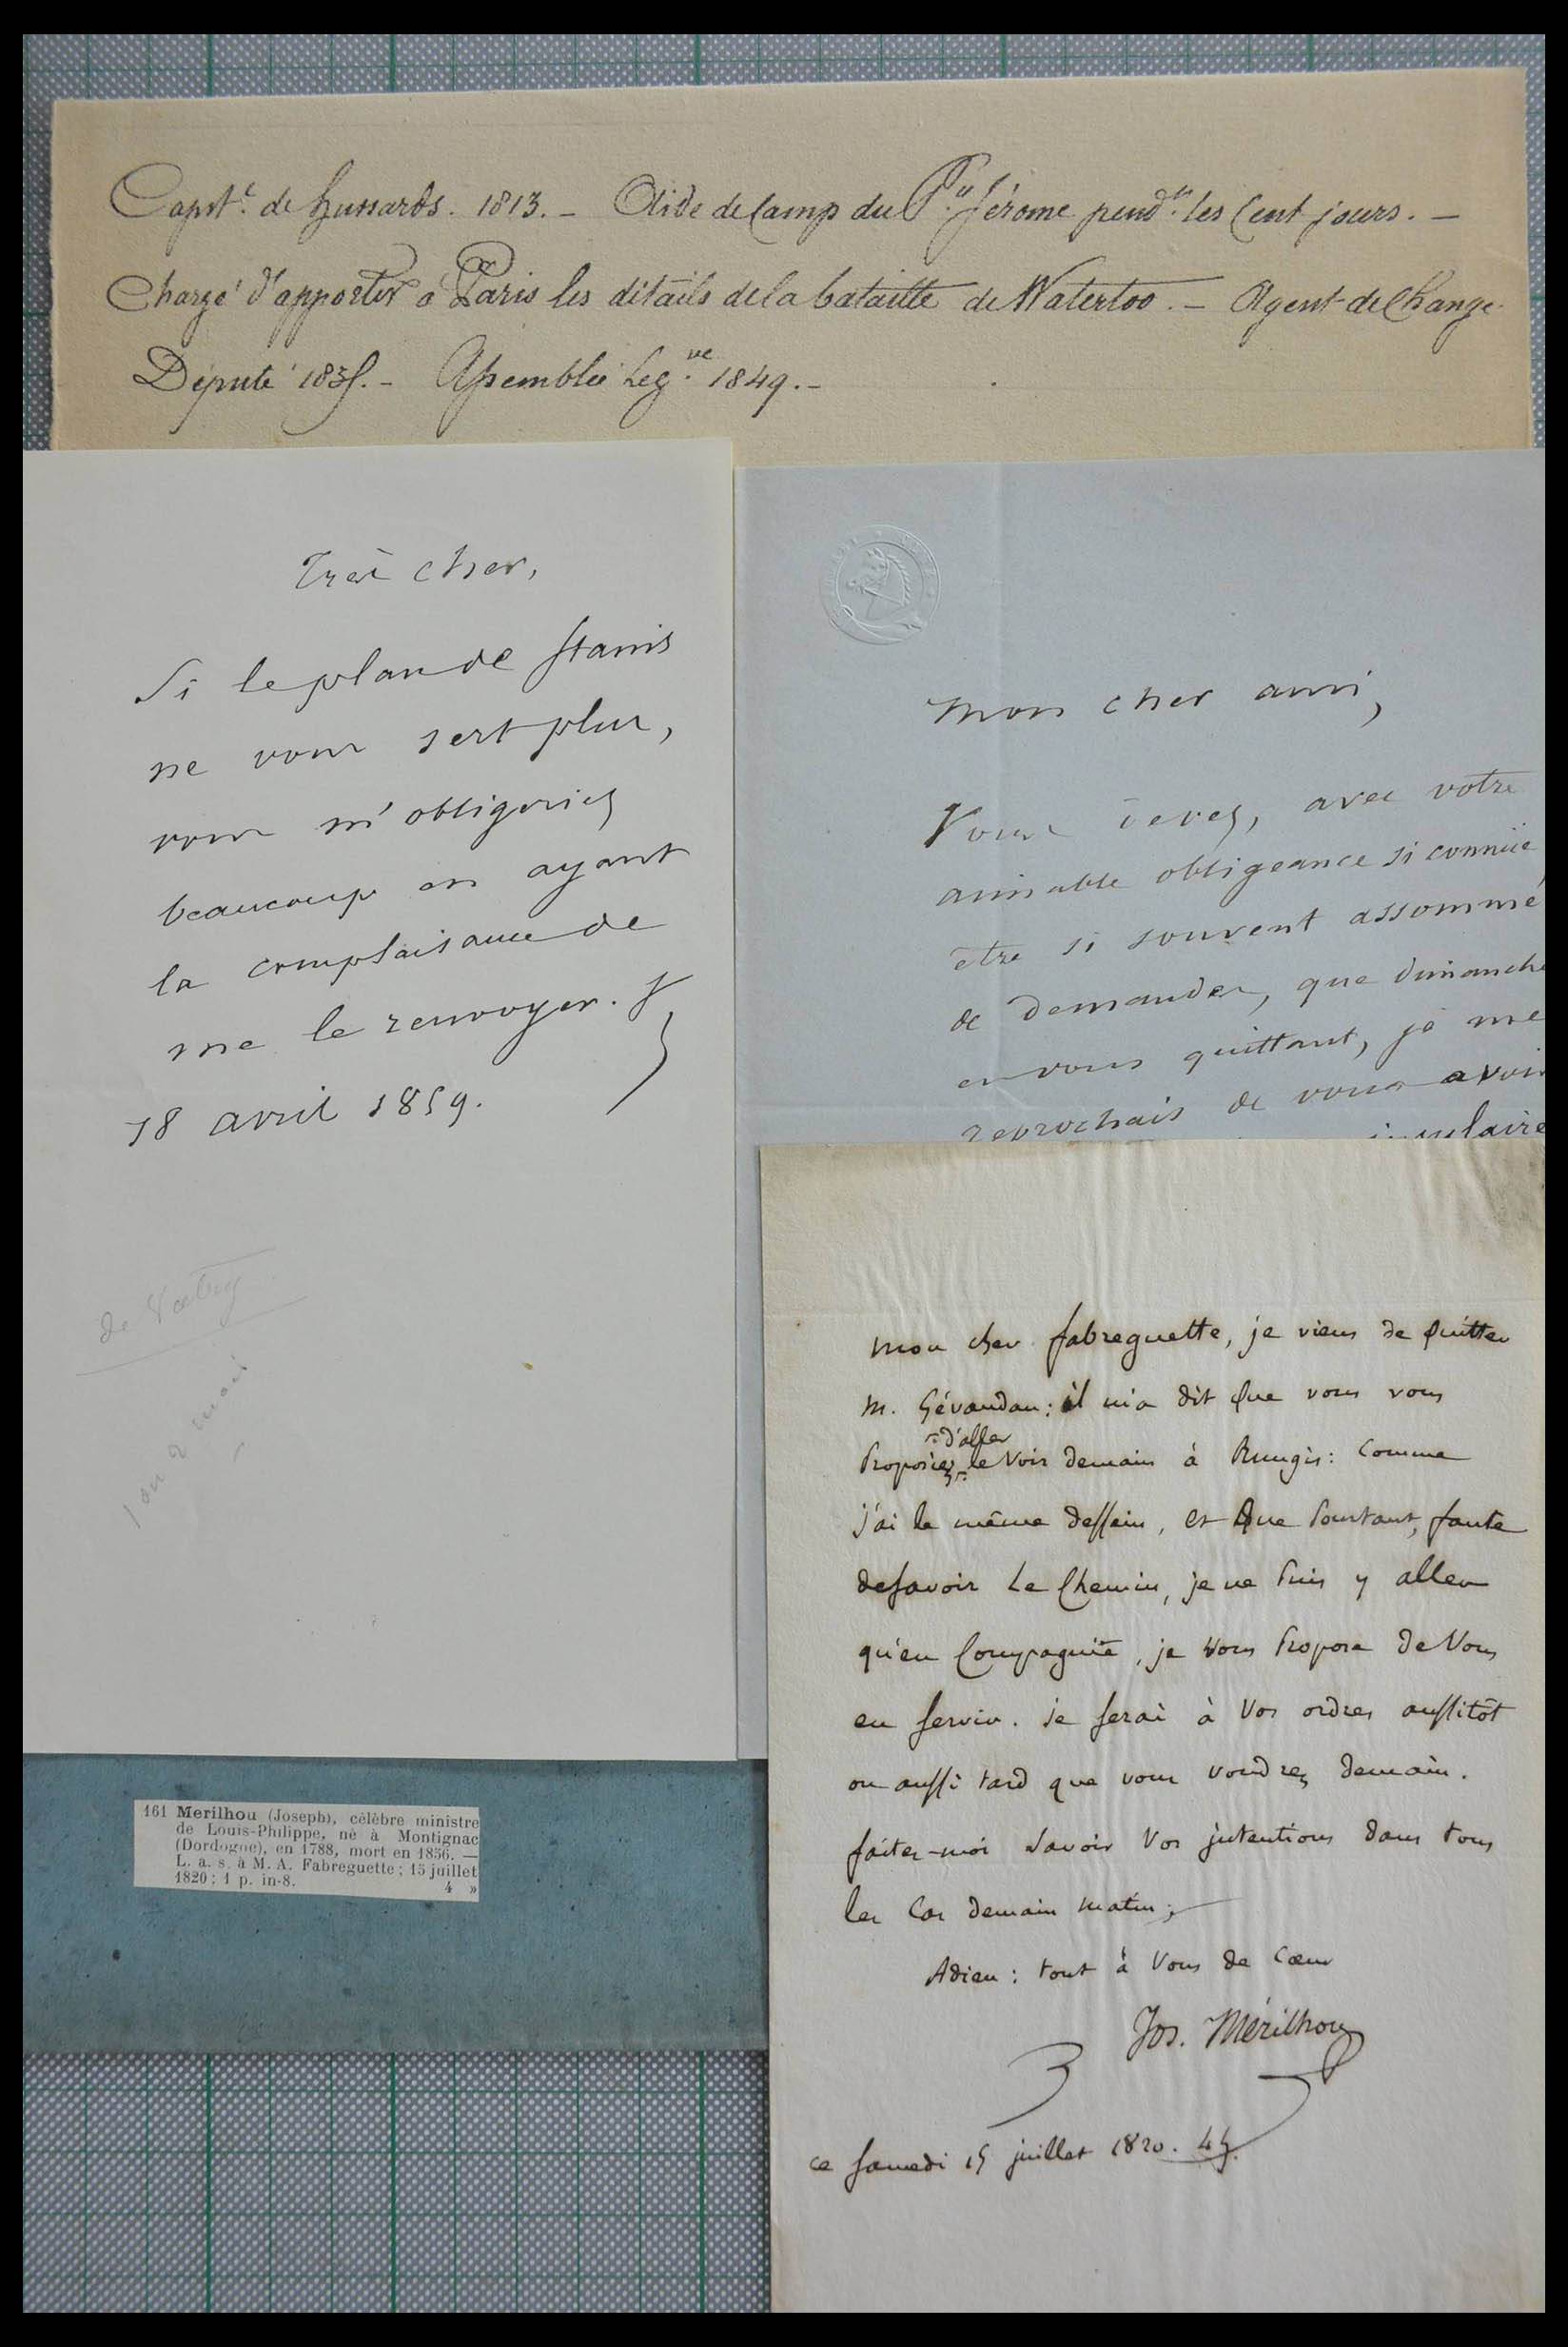 Capit.e de hussards. 1813. – Aide de Camp du P.ce Jérome pend.t les Cent jours. –
Chargé d'apporter à Paris les détails de la bataille de Waterloo. – Agent de Change
Député 1835. – Assemblée Leg.ve 1849. –
Très cher,
Si le plan de Stanis
ne vous sert plus,
vous m'obligeriez
beaucoup en ayant
la complaisance de
me le renvoyer.
18 avril 1859.
de Vatry
mon cher ami,
Vous devez, avec votre
aimable obligeance si connue
être si souvent assommé
de demandes, que dimanche
en vous quittant, je me
reprochais de vous avoir
mon cher fabreguette, je viens de quitter
M. Gévaudan: il m'a dit que vous vous
proposiez d'aller le voir demain à Rungis: comme
j'ai le même dessein, et que pourtant, faute
de savoir le chemin, je ne puis y aller
qu'en compagnie, je vous propose de vous
en servir. je serai à vos ordres aussitôt
ou aussi tard que vous voudrez demain.
faites-moi savoir vos intentions dans tous
les cas demain matin;
Adieu: tout à vous de cœur
Jos. Mérilhou
ce samedi 15 juillet 1820.
161 Merilhou (Joseph), célèbre ministre
de Louis-Philippe, né à Montignac
(Dordogne), en 1788, mort en 1856. —
L. a. s. à M. A. Fabreguette; 15 juillet
1820; 1 p. in-8. 4 »